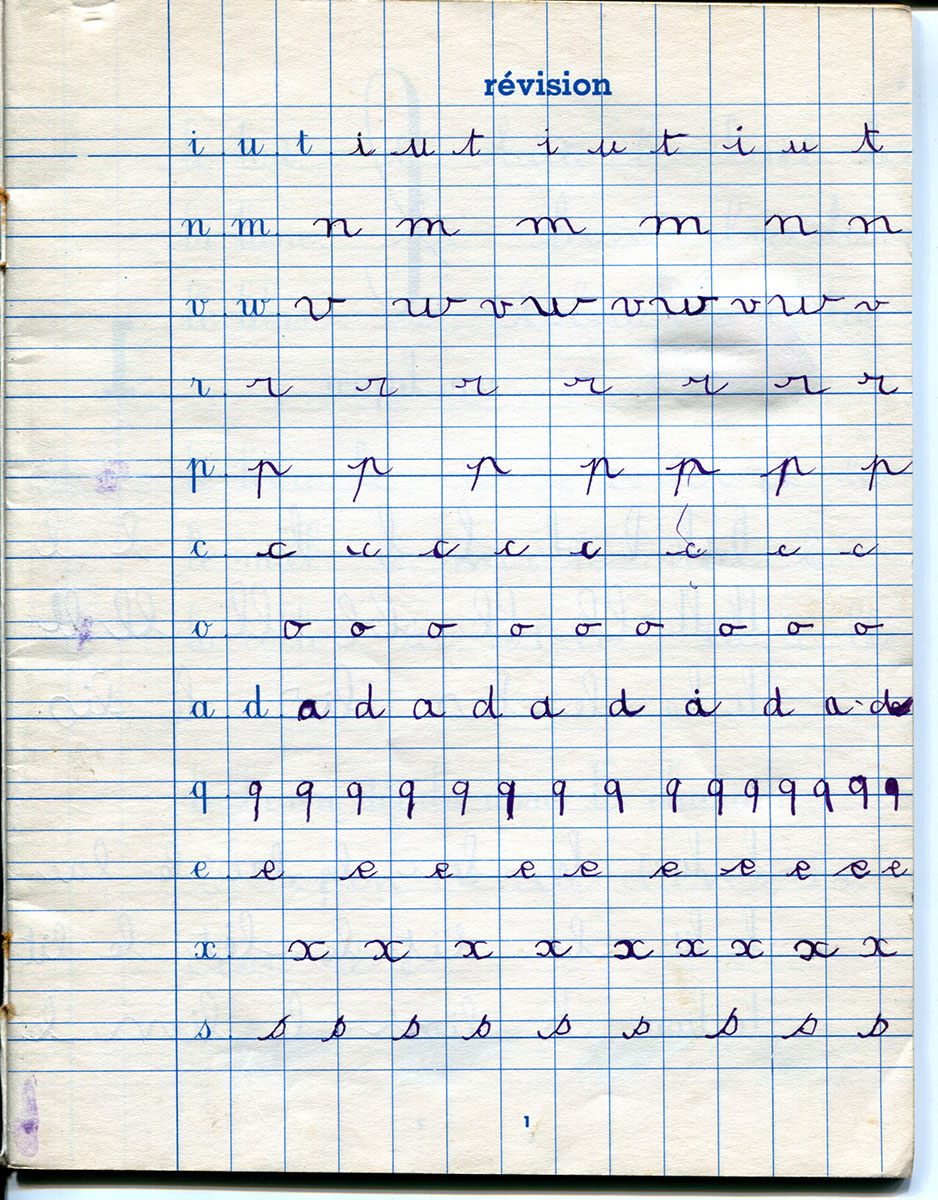 révision
i u t i u t i u t i u t
n m n m m m n n
v w v w v w v w v w v
r r r r r r r r
p p p p p p p p
c c c c c c c c c
o o o o o o o o o o
a d a d a d a d a d a d
q q q q q q q q q q q q q q q
e e e e e e e e e e e
x x x x x x x x x x
s s s s s s s s s s
1